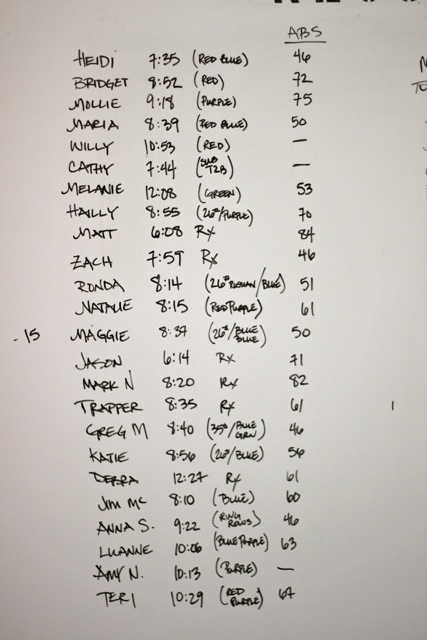 ABS
HEIDI 7:35 (RED BLUE) 46
BRIDGET 8:52 (RED) 72
MOLLIE 9:18 (PURPLE) 75
MARIA 8:39 (RED BLUE) 50
WILLY 10:53 (RED) —
CATHY 7:44 (SUB T2B) —
MELANIE 12:08 (GREEN) 53
HAILLY 8:55 (26#/PURPLE) 70
MATT 6:08 Rx 84
ZACH 7:59 Rx 46
RONDA 8:14 (26# /BLUE) 51
NATALIE 8:15 (RED PURPLE) 61
- 15 MAGGIE 8:37 (26#/BLUE BLUE) 50
JASON 6:14 Rx 71
MARK N 8:20 Rx 82
TRAPPER 8:35 Rx 61
GREG M 8:40 (35#/BLUE GRN) 46
KATIE 8:56 (26#/BLUE) 56
DEBRA 12:27 Rx 61
JIM MC 8:10 (BLUE) 60
ANNA S. 9:22 (RING ROWS) 46
LUANNE 10:06 (BLUE PURPLE) 63
AMY N. 10:13 (PURPLE) —
TERI 10:29 (RED PURPLE) 67